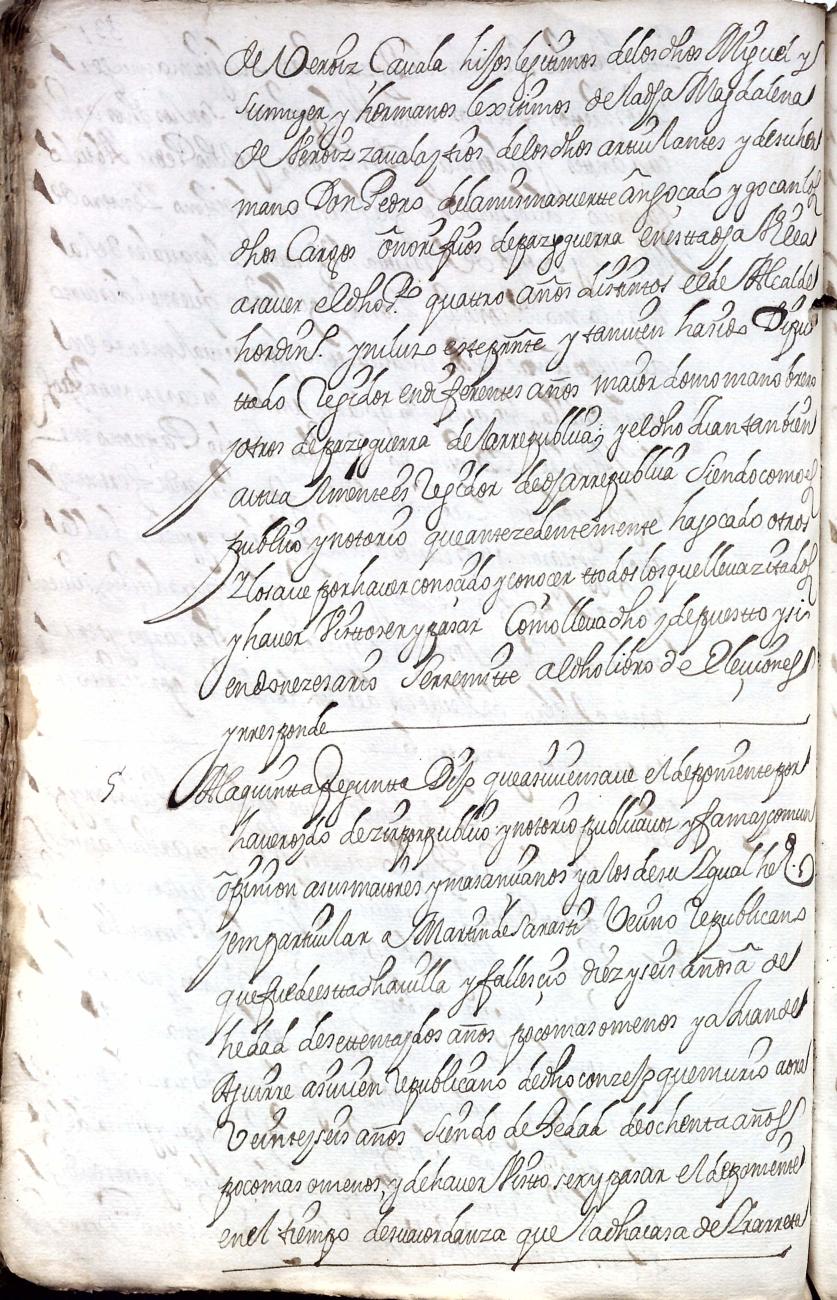 de Verroiz Çauala hijos lejitimos delos dhos Miguel y
su muger y hermanos lexitimos de la dha Magdalena
de Verroiz zauala y tios delos dhos articulantes y de su her
mano Don Pedro dela misma suertte an goçado y goçan los
dhos Cargos onorificos de paz y guerra en estta dha Villa
asauer el dho Po quattro años distintos el de Alcalde
hordinº yncluso este preste y tamuien ha sido Dipu
ttado Regidor en diferentes años maiordomo manobrero
y otros de paz y guerra de la rrepublica; y el dho Juan tambien
actualmente es Regidor de dha rrepublica siendo como es
publico y notorio que antezedentemente ha goçado otros
Y lo saue por hauer conozido y conocer ttodos los que lleua zitados
y hauer Vistto ser y pasar Como lleua dho y depuestto y si
endo nezesario se rremitte al dho libro de Elecciones
y rresponde
5 A la quintta Preguntta Dijo que asimismo saue el deponiente por
hauer oydo dezir por publico y notorio publica voz y fama y comun
opinion a sus maiores y mas ancianos y a los de su Ygual he
y em particular a Martin de Sarasti Vecino Republicano
que fue de estta dha uilla y fallescio diez y seis años a de
hedad de settenta y dos años poco mas o menos y a Juan de
Aguirre asimien Republicano de dho conzejo que murio aora
Veinte y seis años siendo de hedad de ochenta años
poco mas o menos, y de hauer Vistto ser y pasar el deponiente
en el tiempo de su acordanza que la dha casa de Yrarreta